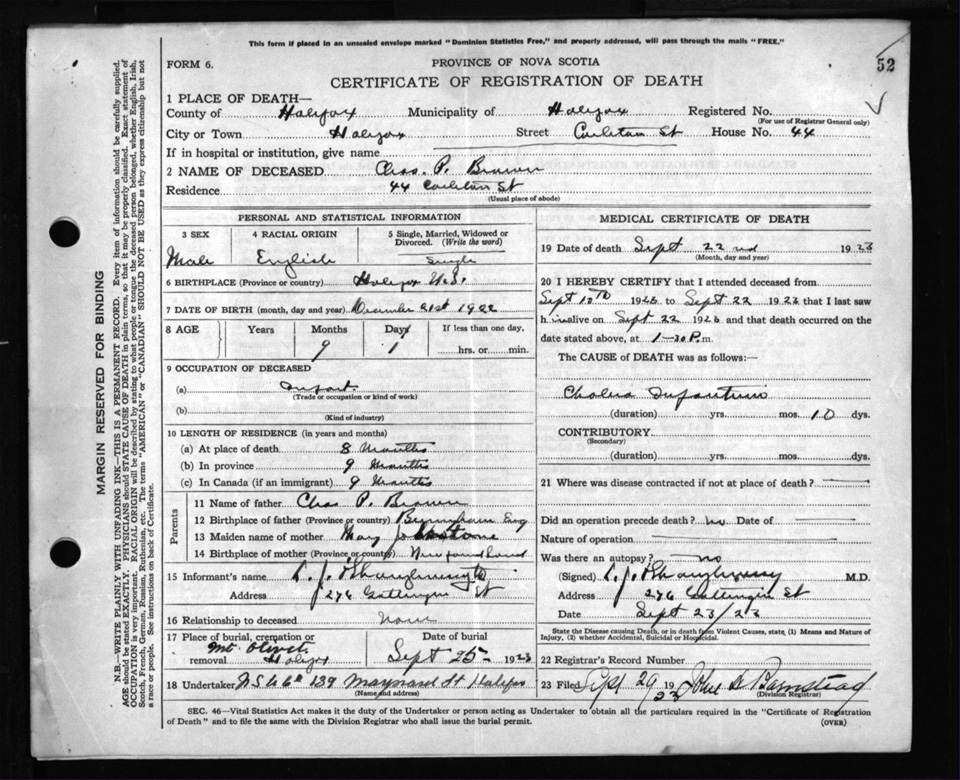 This form if placed in an unsealed envelope marked "Dominion Statistics Free," and properly addressed, will pass through the mails "FREE."
52
FORM 6.
PROVINCE OF NOVA SCOTIA
CERTIFICATE OF REGISTRATION OF DEATH
1 PLACE OF DEATH—
County of Halifax Municipality of Halifax Registered No.
(For use of Registrar General only)
City or Town Halifax Street Carleton St House No. 44
If in hospital or institution, give name
2 NAME OF DECEASED Chas. P. Brown
Residence 44 Carleton St
(Usual place of abode)
PERSONAL AND STATISTICAL INFORMATION
3 SEX 4 RACIAL ORIGIN 5 Single, Married, Widowed or Divorced. (Write the word)
Male English Single
6 BIRTHPLACE (Province or country) Halifax N.S.
7 DATE OF BIRTH (month, day and year) December 21st 1922
8 AGE Years Months Days If less than one day,
9 1 hrs. or min.
9 OCCUPATION OF DECEASED
(a) Infant
(Trade or occupation or kind of work)
(b)
(Kind of industry)
10 LENGTH OF RESIDENCE (in years and months)
(a) At place of death 8 Months
(b) In province 9 Months
(c) In Canada (if an immigrant) 9 Months
Parents
11 Name of father Chas P. Brown
12 Birthplace of father (Province or country) Eng
13 Maiden name of mother Mary
14 Birthplace of mother (Province or country) Newfoundland
15 Informant's name
Address 276 Gottingen St
16 Relationship to deceased None
17 Place of burial, cremation or removal Mt. Olivet Halifax
Date of burial Sept 25 1923
18 Undertaker 139 Maynard St Halifax
(Name and address)
MEDICAL CERTIFICATE OF DEATH
19 Date of death Sept 22nd 1923
(Month, day and year)
20 I HEREBY CERTIFY that I attended deceased from
Sept 10th 1923 to Sept 22 1923 that I last saw
h im alive on Sept 22 1923 and that death occurred on the
date stated above, at 1-30 P.m.
The CAUSE of DEATH was as follows:—
Cholera Infantum
(duration) yrs. mos. 10 dys.
CONTRIBUTORY
(Secondary)
(duration) yrs. mos. dys.
21 Where was disease contracted if not at place of death?
Did an operation precede death? no Date of
Nature of operation
Was there an autopsy? no
(Signed) M.D.
Address 276 Gottingen St
Date Sept 23/23
State the Disease causing Death, or in death from Violent Causes, state (1) Means and Nature of Injury, (2) whether Accidental, Suicidal or Homicidal.
22 Registrar's Record Number
23 Filed Sept 29 1923
(Division Registrar)
SEC. 46—Vital Statistics Act makes it the duty of the Undertaker or person acting as Undertaker to obtain all the particulars required in the "Certificate of Registration
of Death" and to file the same with the Division Registrar who shall issue the burial permit.
(OVER)
MARGIN RESERVED FOR BINDING
N.B.—WRITE PLAINLY WITH UNFADING INK—THIS IS A PERMANENT RECORD. Every item of information should be carefully supplied.
AGE should be stated EXACTLY. PHYSICIANS should STATE CAUSE OF DEATH in plain terms, so that it may be properly classified. Exact statement of
OCCUPATION is very important. RACIAL ORIGIN will be described by stating to what people or tongue the deceased person belonged, whether English, Irish,
Scotch, French, German, Russian, Ruthenian, etc. The terms "AMERICAN" or "CANADIAN" SHOULD NOT BE USED as they express citizenship but not
a race or people. See instructions on back of Certificate.